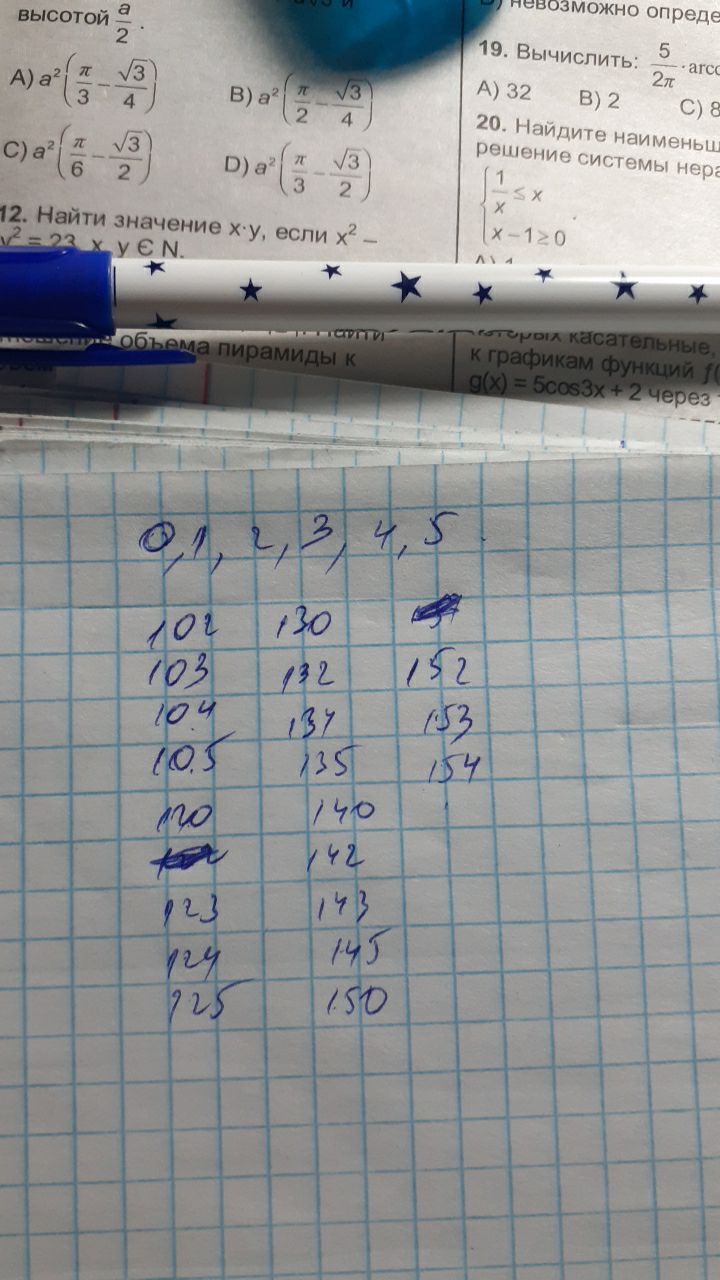 высотой a/2 .
A) a²(π/3 − √3/4)
B) a²(π/2 − √3/4)
C) a²(π/6 − √3/2)
D) a²(π/3 − √3/2)
12. Найти значение x·y, если x² −
y² = 23, x, y Є N.
объема пирамиды к
невозможно опреде
19. Вычислить: 5/2π · arcc
A) 32 B) 2 C) 8
20. Найдите наименьш
решение системы нера
{ 1/x ≤ x
x − 1 ≥ 0 .
касательные,
к графикам функций f(
g(x) = 5cos3x + 2 через
0, 1, 2, 3, 4, 5
102 130
103 132 152
104 134 153
105 135 154
120 140
142
123 143
124 145
125 150